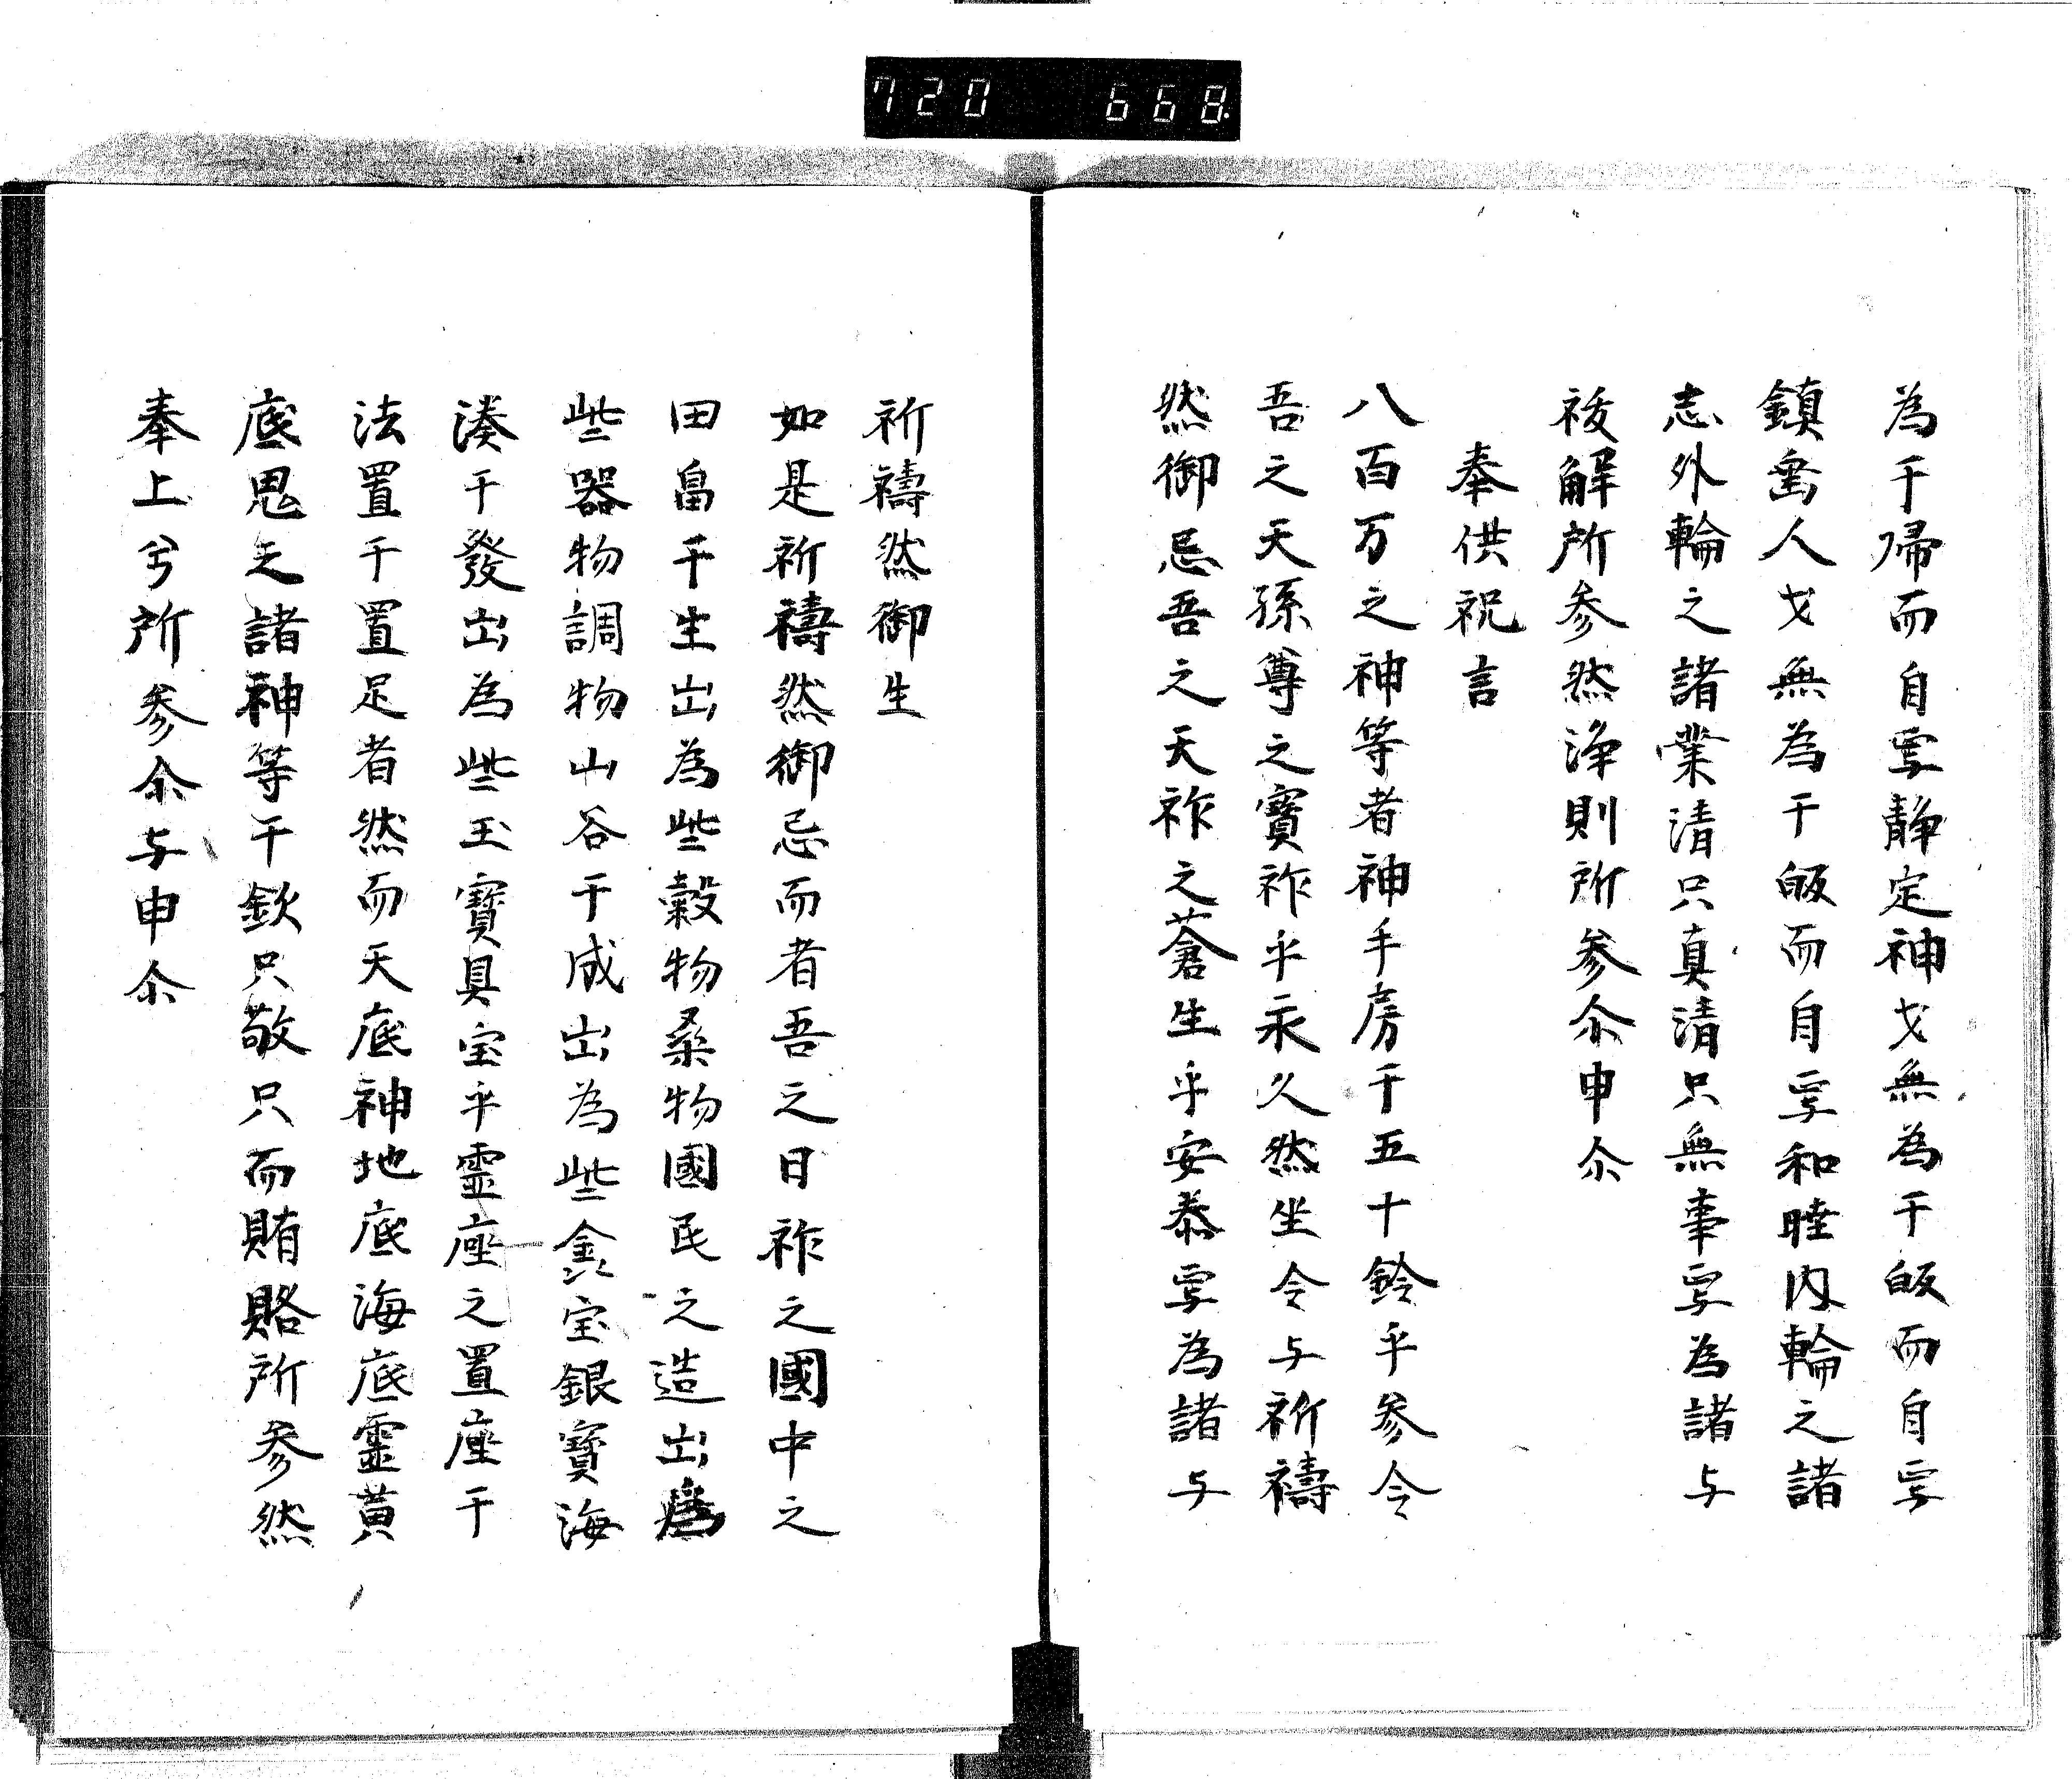 720 668
為于帰而自寧静定神戈無為于皈而自寧
鎮寍人戈無為于皈而自寧和睦内輪之諸
志外輪之諸業清只真清只無事寧為諸与
祓解所参然浄則所参尒申尒
奉供祝言
八百万之神等者神手房于五十鈴乎参令
吾之天孫尊之寳祚乎永久然坐令与祈禱
然御忌吾之天祚之蒼生乎安泰寧為諸与
祈禱然御生
如是祈禱然御忌而者吾之日祚之國中之
田畠于生出為些穀物桑物國民之造出為
些器物調物山谷于成出為些金宝銀寳海
湊于發出為些玉寳具宝乎霊座之置座于
法置于置足者然而天底神地底海底霊黄
底鬼之諸神等于欽只敬只而賄賂所参然
奉上兮所参尒与申尒